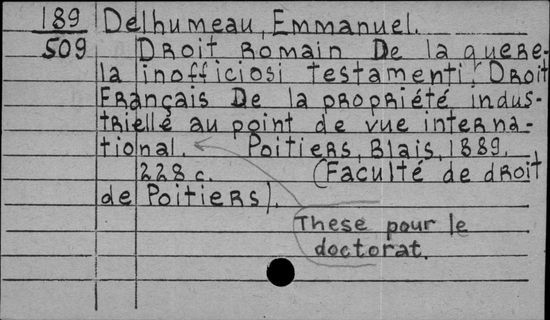 189 Delhumeau, Emmanuel.
509 Droit Romain De la quere-
la inofficiosi testamenti. Droit
Français De la propriété indus-
trielle au point de vue interna-
tional. Poitiers, Blais, 1889.
228 c. (Faculté de droit
de Poitiers).
These pour le
doctorat.